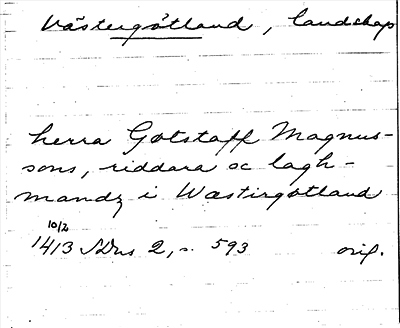 Västergötland, landskap
herra Gotstaff Magnus-
sons, riddara oc lagh-
mandz i Wæstirgotland
10/2
1413 SDns 2, s. 593 orig.